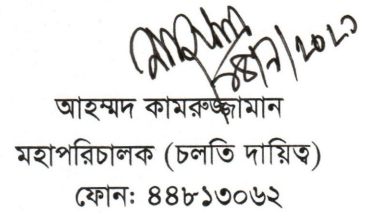 আহম্মদ কামরুজ্জামান
মহাপরিচালক (চলতি দায়িত্ব)
ফোন: ৪৪৮১৩০৬২